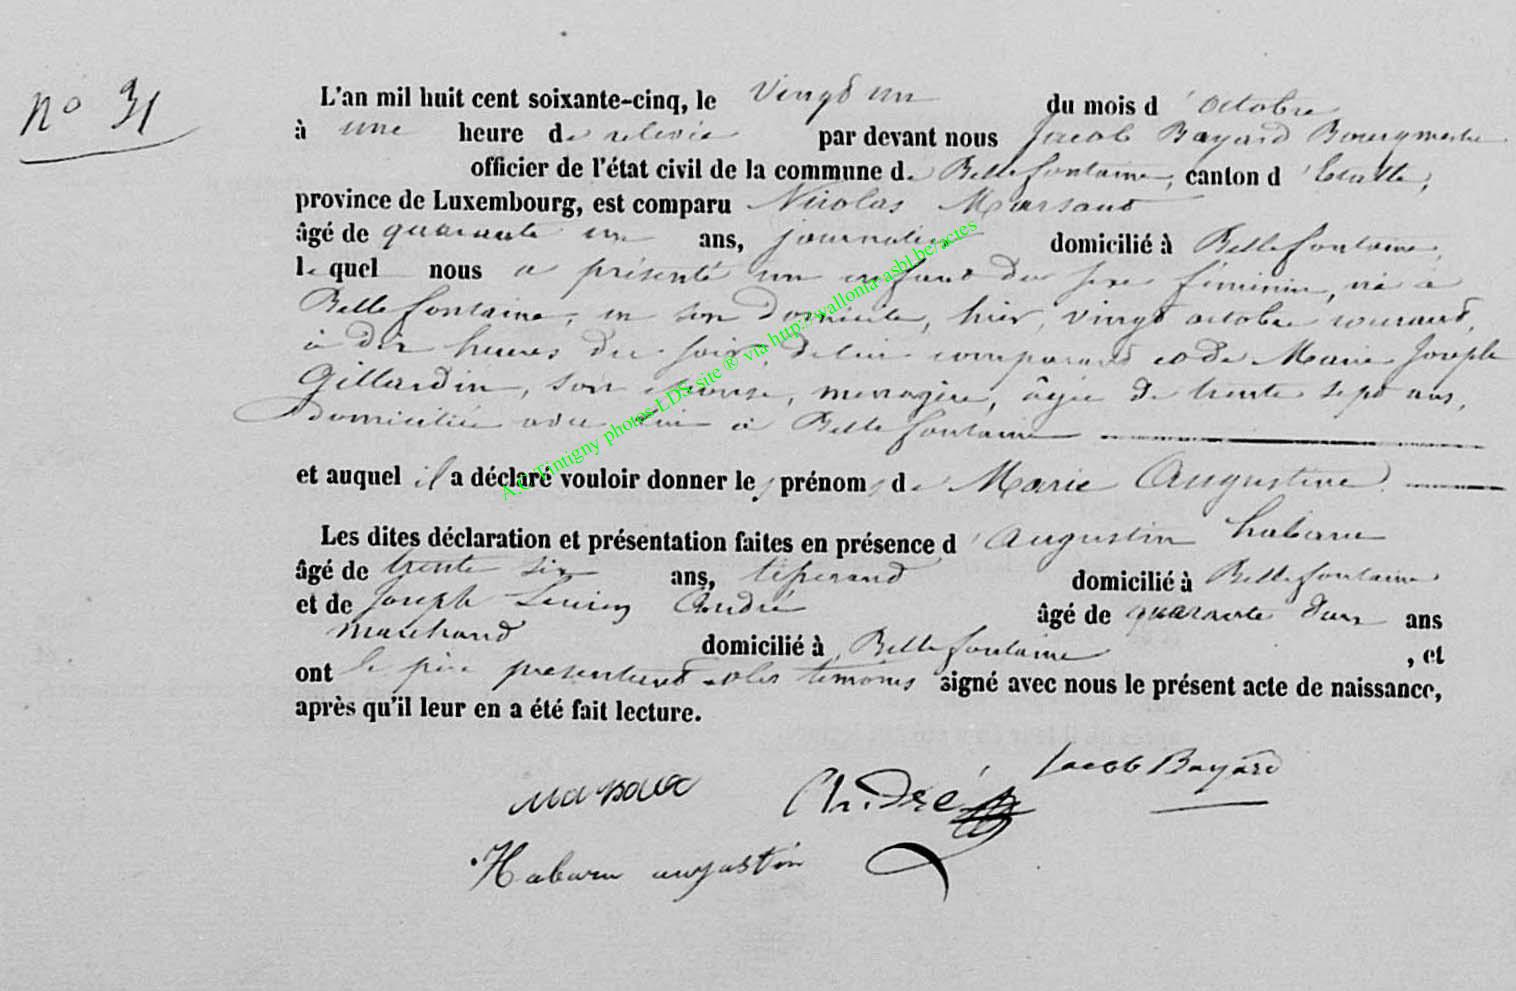 n° 31
L'an mil huit cent soixante-cinq, le vingt un du mois d'octobre
à une heure de relevée par devant nous Jacob Bayard Bourgmestre
officier de l'état civil de la commune de Bellefontaine, canton d'Etalle,
province de Luxembourg, est comparu Nicolas Marsaut
âgé de quarante un ans, journalier domicilié à Bellefontaine,
lequel nous a présenté un enfant du sexe féminin, né à
Bellefontaine, en son domicile, hier, vingt octobre courant,
à dix heures du soir, de lui comparant et de Marie Joseph
Gillardin, son épouse, menagère, âgée de trente sept ans,
domiciliée avec lui à Bellefontaine
et auquel il a déclaré vouloir donner les prénoms de Marie Augustine.
Les dites déclaration et présentation faites en présence d'Augustin habaru
âgé de trente six ans, tisserand domicilié à Bellefontaine
et de Joseph Lucien André âgé de quarante deux ans
marchand domicilié à Bellefontaine, et
ont le père présentant et les témoins signé avec nous le présent acte de naissance,
après qu'il leur en a été fait lecture.
Jacob Bayard
André
Habaru augustin
A.C Tintigny photos LDS site ® via http://wallonia-asbl.be/actes